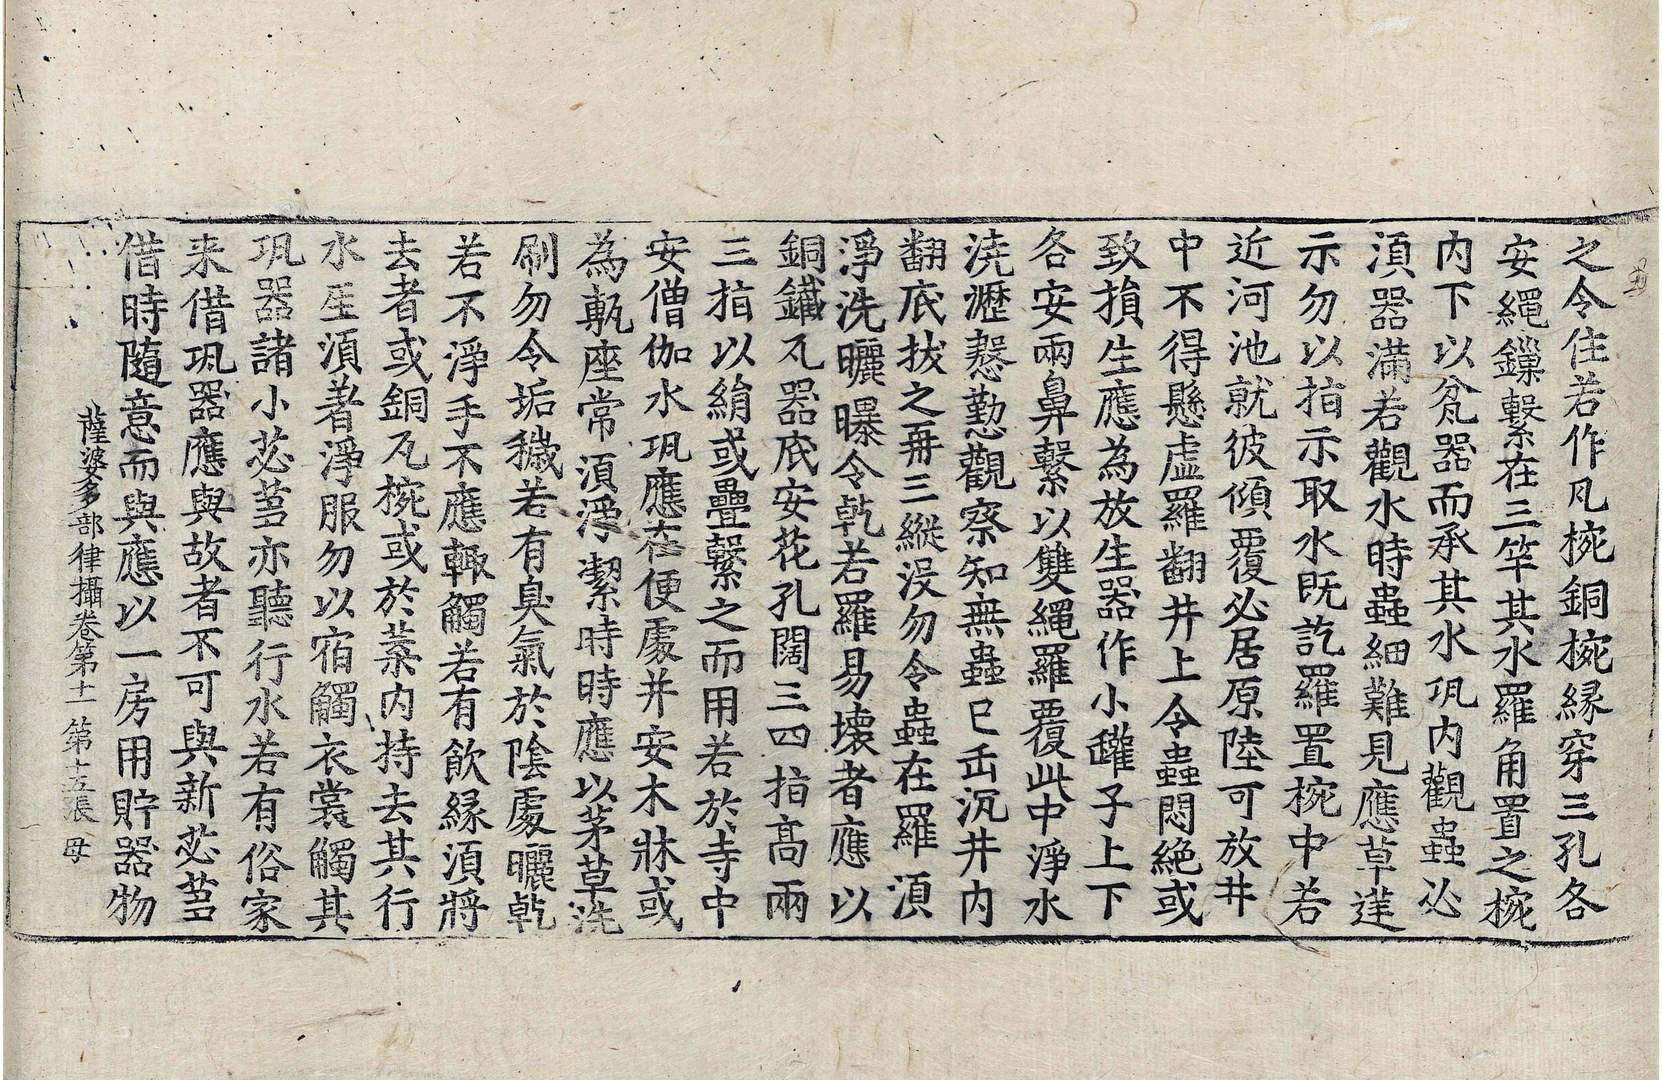 之令住若作瓦椀銅椀緣穿三孔各
安繩鏁繫在三竿其水羅角置之椀
內下以瓮器而承其水瓨內觀蟲必
須器滿若觀水時蟲細難見應草莛
示勿以指示取水既訖羅置椀中若
近河池就彼傾覆必居原陸可放井
中不得懸虛羅翻井上令蟲悶絕或
致損生應為放生器作小罐子上下
各安兩鼻繫以雙繩羅覆此中淨水
澆瀝慇懃觀察知無蟲已缶沉井內
翻底拔之再三縱沒勿令蟲在羅須
淨洗曬曝令乾若羅易壞者應以
銅鐵瓦器底安花孔闊三四指高兩
三指以絹或疊繫之而用若於寺中
安僧伽水瓨應在便處并安木牀或
為甎座常須淨潔時時應以茅草洗
刷勿令垢穢若有臭氣於陰處曬乾
若不淨手不應輒觸若有飲緣須將
去者或銅瓦椀或於葉內持去其行
水座須著淨服勿以宿觸衣裳觸其
瓨器諸小苾蒭亦聽行水若有俗家
来借瓨器應與故者不可與新苾蒭
借時隨意而與應以一房用貯器物
薩婆多部律攝卷第十一 第十五張 母